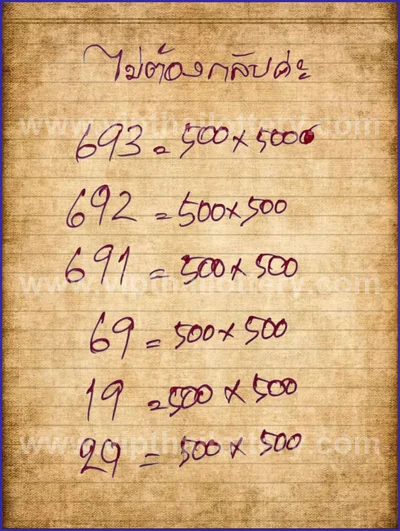 ไม่ต้องกลับค่ะ
693 = 500 x 500
692 = 500 x 500
691 = 500 x 500
69 = 500 x 500
19 = 500 x 500
29 = 500 x 500